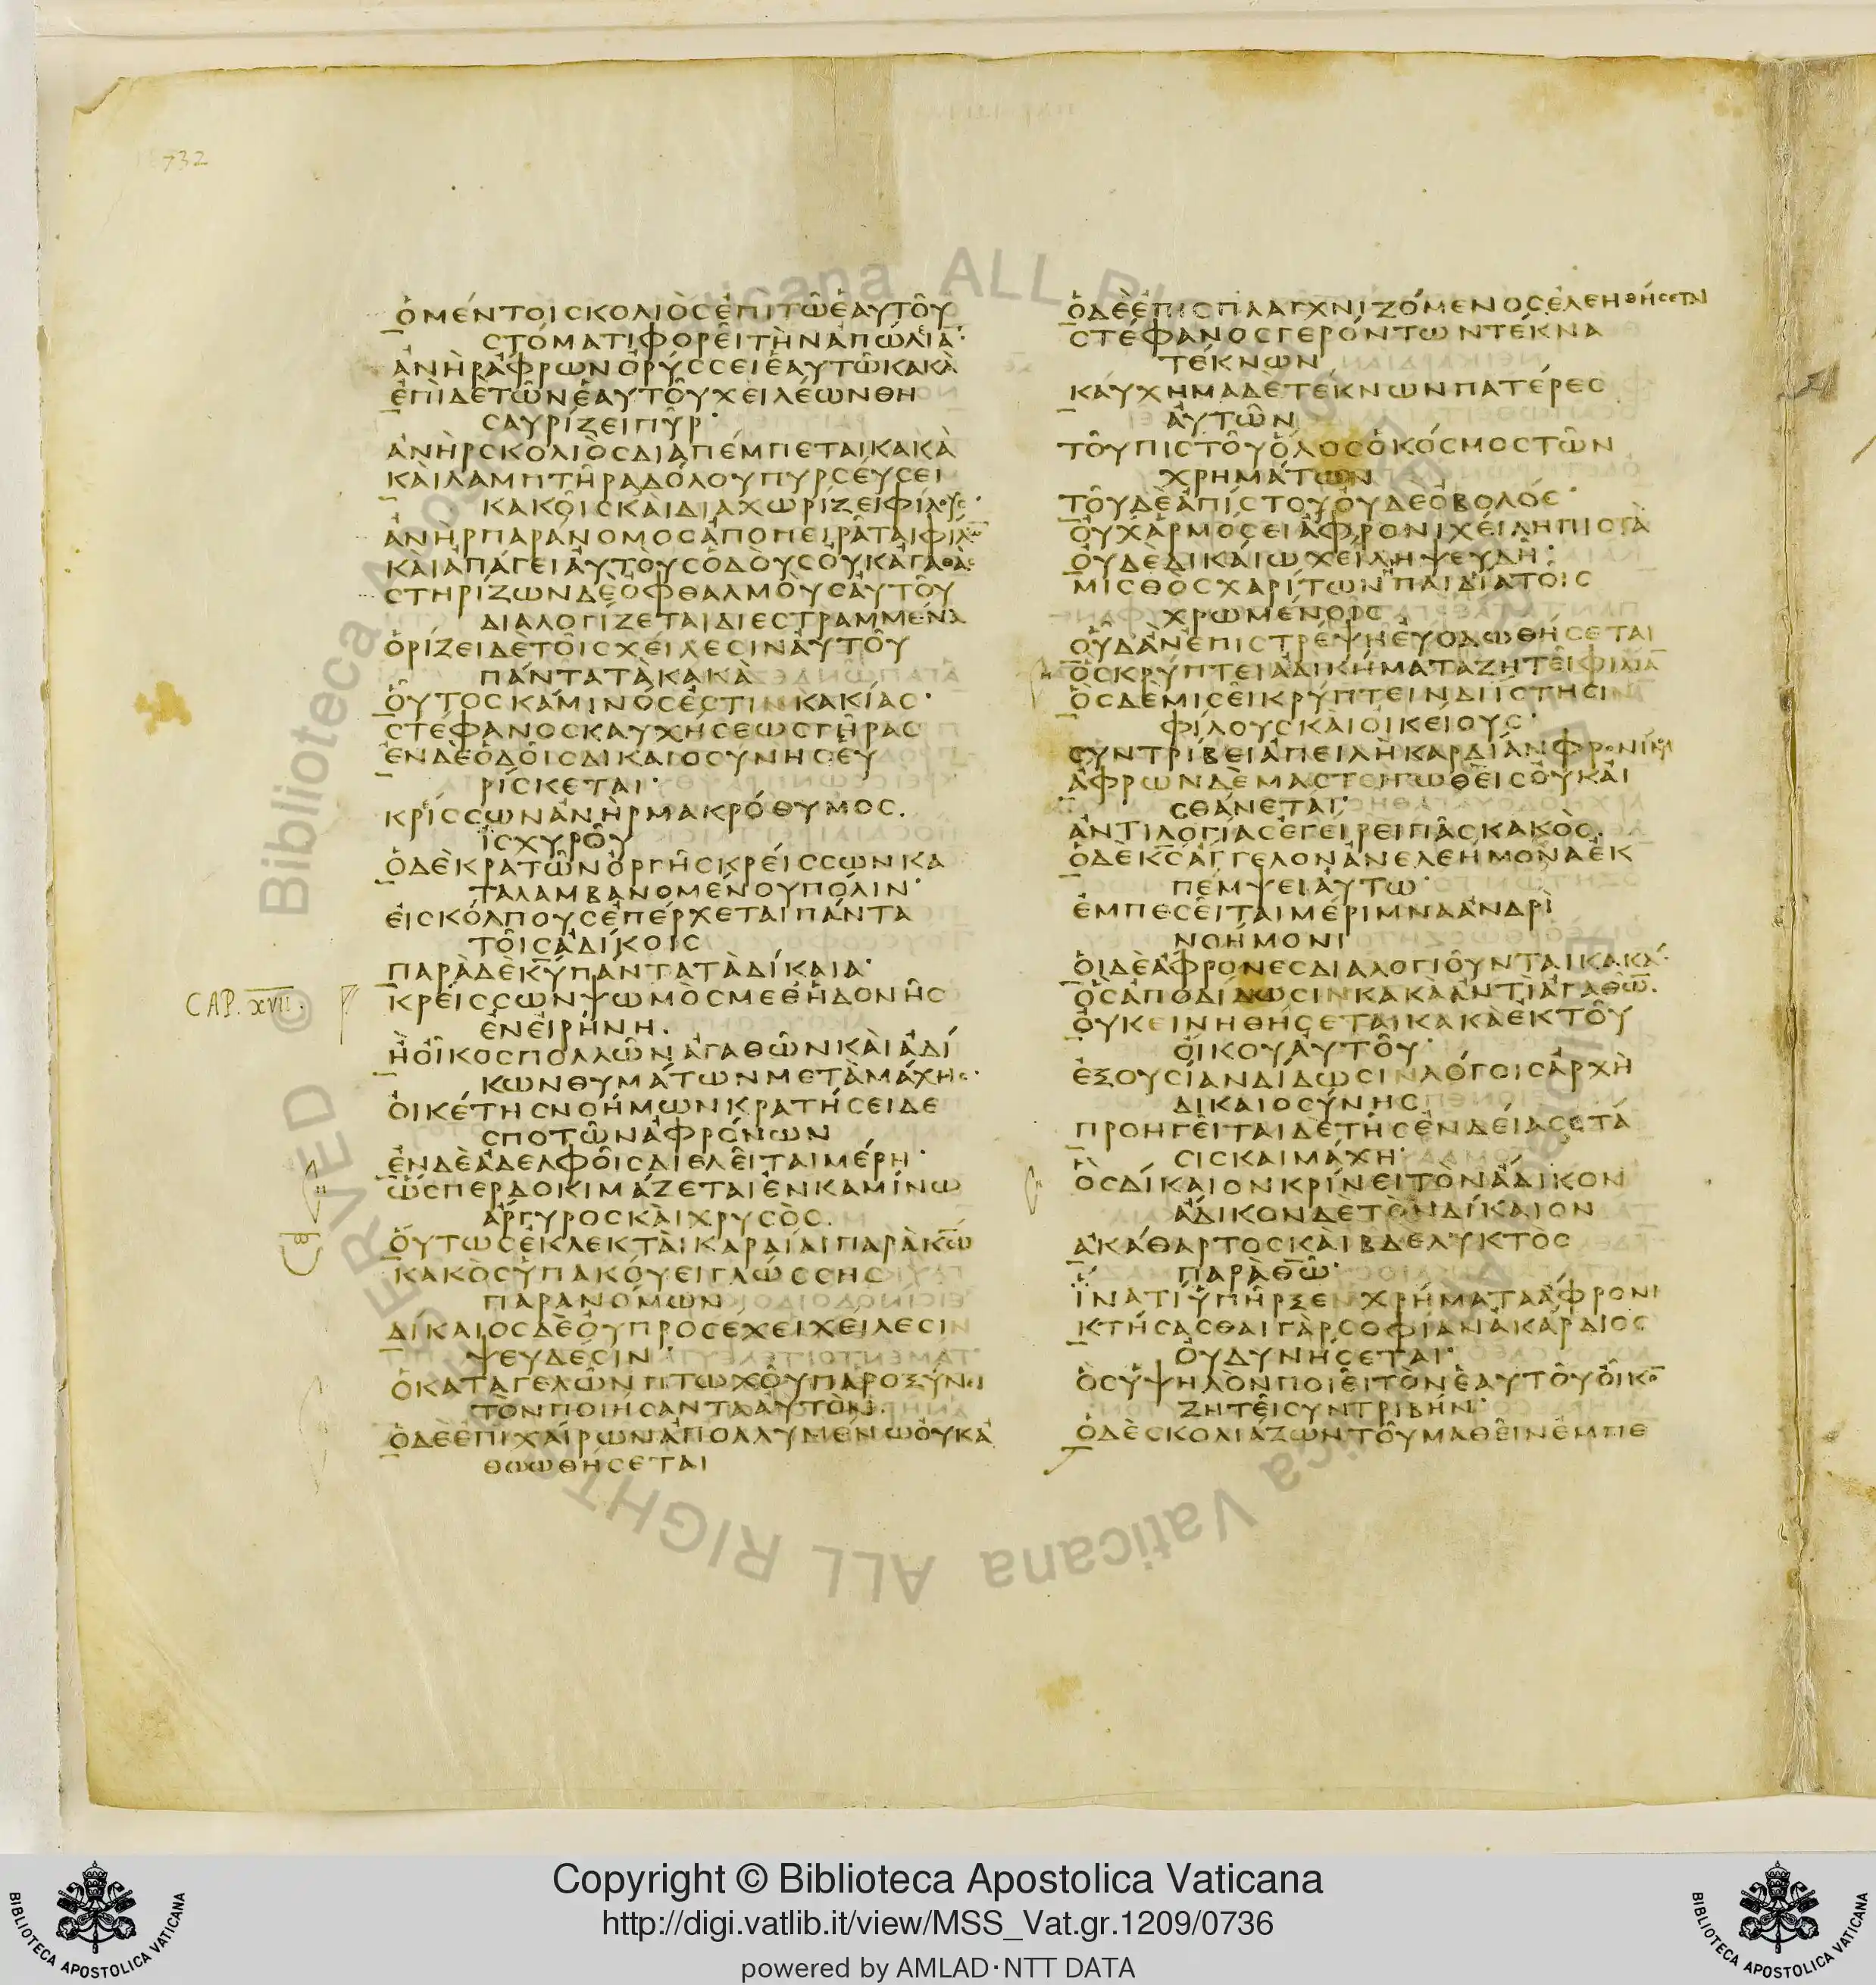 732
ὁ μέντοι σκολιὸς ἐπὶ τῶ ἑαυτοῦ
στόματι φορεῖ τὴν ἀπώλιᾱ·
ἀνὴρ ἄφρων ὀρύσσει ἑαυτῶ κακὰ
ἐπὶ δὲ τῶν ἑαυτοῦ χειλέων θη
σαυρίζει πῦρ·
ἀνὴρ σκολιὸς διαπέμπεται κακὰ
καὶ λαμπτῆρα δόλου πυρσεύσει
κακοῖς καὶ διαχωρίζει φίλους·
ἀνὴρ παράνομος ἀποπειρᾶται φίλω̄
καὶ ἀπάγει αὐτοὺς ὁδοὺς οὐκ ἀγαθάς
στηρίζων δὲ ὀφθαλμοὺς αὐτοῦ
διαλογίζεται διεστραμμένα
ὁρίζει δὲ τοῖς χείλεσιν αὐτοῦ
πάντα τὰ κακὰ
οὗτος κάμινός ἐστιν κακίας·
στέφανος καυχήσεως γῆρας
ἐν δὲ ὁδοῖς δικαιοσύνης εὑ
ρίσκεται·
κρίσσων ἀνὴρ μακρόθυμος.
ἰσχυροῦ
ὁ δὲ κρατῶν ὀργῆς κρείσσων κα
ταλαμβανομένου πόλιν·
εἰς κόλπους ἐπέρχεται πάντα
τοῖς ἀδίκοις
παρὰ δὲ κ̅υ̅ πάντα τὰ δίκαια·
CAP. XVII.
κρείσσων ψωμὸς μεθ ἡδονῆς
ἐν εἰρήνη.
ἢ οἶκος πολλῶν ἀγαθῶν καὶ ἀδί
κων θυμάτων μετὰ μάχης·
οἰκέτης νοήμων κρατήσει δε
σποτῶν ἀφρόνων
ἐν δὲ ἀδελφοῖς διελεῖται μέρη·
ὥσπερ δοκιμάζεται ἐν καμίνω
ἄργυρος καὶ χρυσὸς.
οὕτως ἐκλεκταὶ καρδίαι παρὰ κ̅ω̅
κακὸς ὑπακούει γλώσσης
παρανόμων
δίκαιος δὲ οὐ προσέχει χείλεσιν
ψευδέσιν·
ὁ καταγελῶν πτωχοῦ παροξύνει
τὸν ποιήσαντα αὐτὸν.
ὁ δὲ ἐπιχαίρων ἀπολλυμένω οὐκ ἀ
θωωθήσεται
ὁ δὲ ἐπισπλαγχνιζόμενος ἐλεηθήσεται
στέφανος γερόντων τέκνα
τέκνων
καύχημα δὲ τέκνων πατέρες
αὐτῶν
τοῦ πιστοῦ ὅλος ὁ κόσμος τῶν
χρημάτων
τοῦ δὲ ἀπίστου οὐδὲ ὀβολός·
οὐχ ἁρμόσει ἄφρονι χείλη πιστὰ
οὐδὲ δικαίω χείλη ψευδῆ·
μισθὸς χαρίτων ἡ παιδία τοῖς
χρωμένοις
οὗ δ ἂν ἐπιστρέψη εὐοδωθήσεται
ὃς κρύπτει ἀδικήματα ζητεῖ φιλίᾱ
ὃς δὲ μισεῖ κρύπτειν διίστησι
φίλους καὶ οἰκείους·
συντρίβει ἀπειλὴ καρδίαν φρονίμου
ἄφρων δὲ μαστιγωθεὶς οὐκ αἰ
σθάνεται·
ἀντιλογίας ἐγείρει πᾶς κακὸς.
ὁ δὲ κ̅ς̅ ἄγγελον ἀνελεήμονα ἐκ
πέμψει αὐτω·
ἐμπεσεῖται μέριμνα ἀνδρὶ
νοήμονι
οἱ δὲ ἄφρονες διαλογιοῦνται κακά·
ὃς ἀποδίδωσιν κακὰ ἀντὶ ἀγαθῶ̄.
οὐ κεινηθήσεται κακὰ ἐκ τοῦ
οἴκου αὐτοῦ·
ἐξουσίαν δίδωσιν λόγοις ἀρχὴ
δικαιοσύνης
προηγεῖται δὲ τῆς ἐνδείας στά
σις καὶ μάχη·
ὃς δίκαιον κρίνει τὸν ἄδικον
ἄδικον δὲ τὸν δίκαιον
ἀκάθαρτος καὶ βδελυκτὸς
παρὰ θ̅ω̅·
ἵνα τί ὑπῆρξεν χρήματα ἄφρονι
κτήσασθαι γὰρ σοφίαν ἀκάρδιος
οὐ δυνήσεται·
ὃς ὑψηλὸν ποιεῖ τὸν ἑαυτοῦ οἶκο̄
ζητεῖ συντριβήν·
ὁ δὲ σκολιάζων τοῦ μαθεῖν ἐμπε
Copyright © Biblioteca Apostolica Vaticana
http://digi.vatlib.it/view/MSS_Vat.gr.1209/0736
powered by AMLAD·NTT DATA
BIBLIOTECA APOSTOLICA VATICANA
BIBLIOTECA APOSTOLICA VATICANA